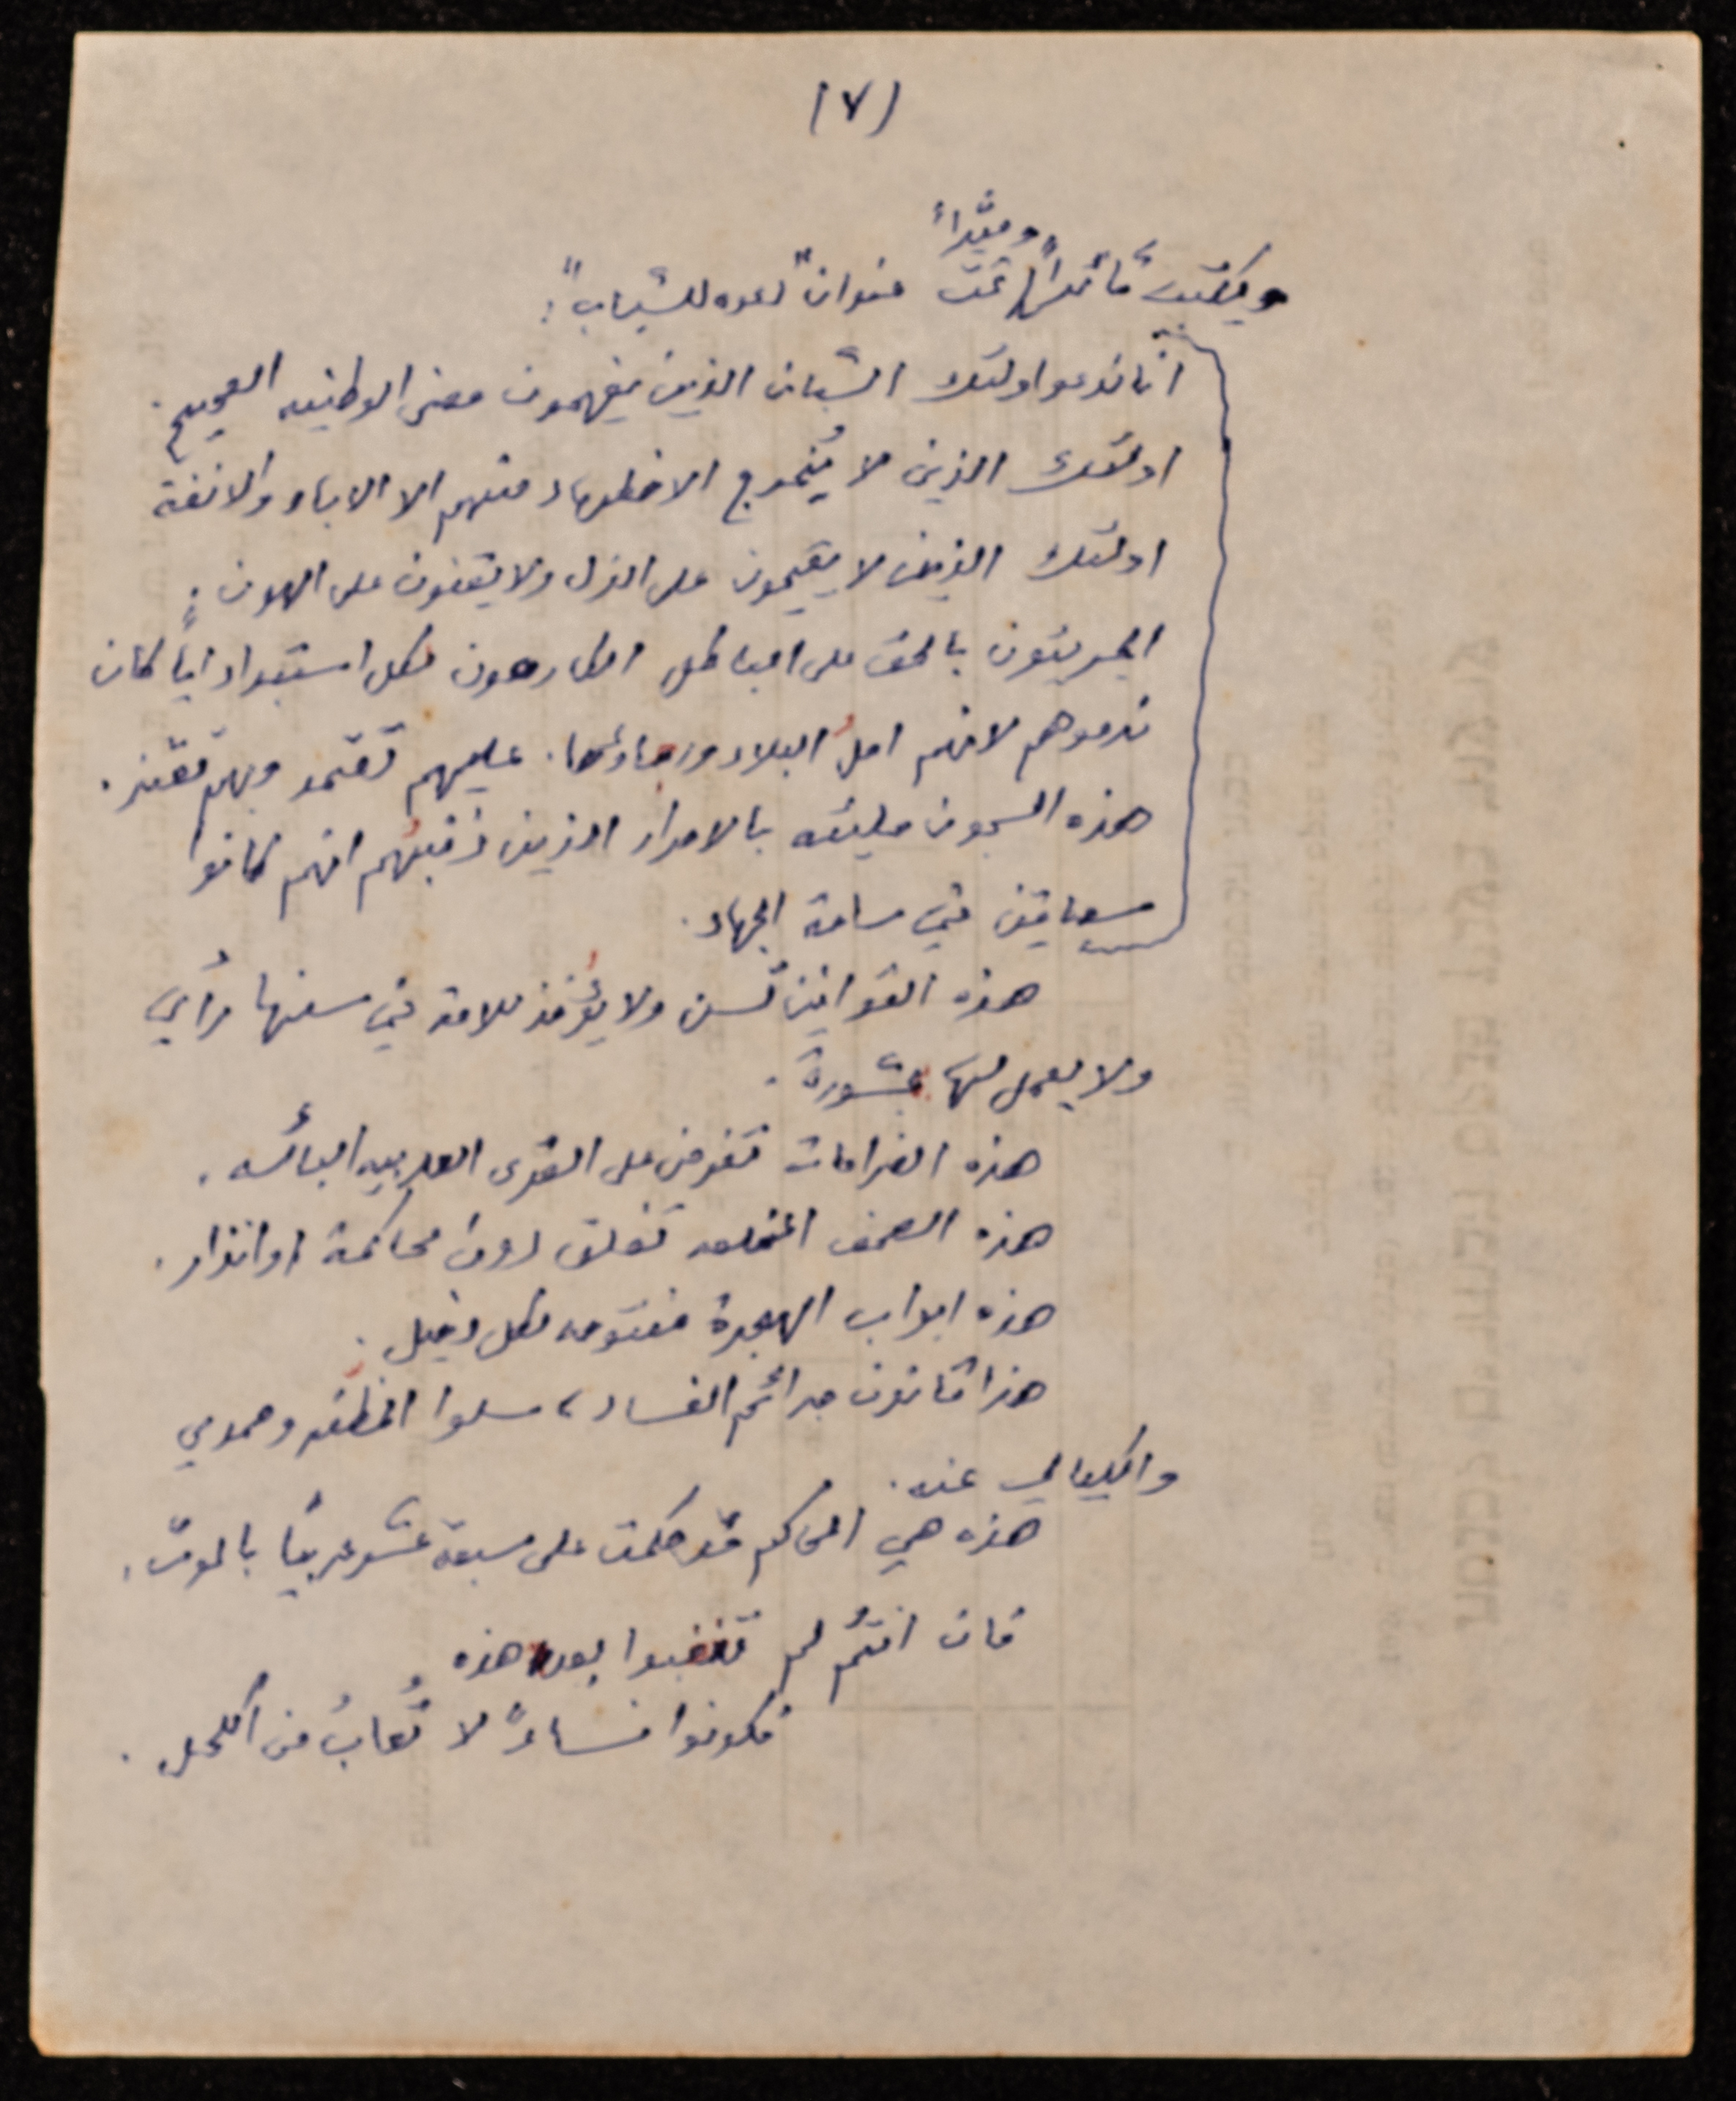 (٧)
ومثيراً
ويكتب ثائراً تحت عنوان "دعوه للشباب":
اننا ندعو اولئك الشبان الذين يفهمون معنى الوطنيه الصحيح.
اولئك الذين لا يُخرج الاضطهاد منهم الا الاباء والانفة
اولئك الذين لا يقيمون على الذل ولا يغفون على الهوان:
الجريئون بالحق على الباطل الكارهون لكل استبداد اياً كان
ندعوهم لانهم املُ البلاد ورجاؤها. عليهم تعتمد وبهم تعتز.
هذه السجون مليئه بالاحرار الذين ذنبُهم انهم كانوا
سباقين في ساحة الجهاد.
هذه القوانين تُسن ولا يؤخذ للامة في سنها رأي
ولا يعمل لها بمشورة.
هذه الغرامات تفرض على القرى العربيه البائسه.
هذه الصحف المخلصه تغلق دون محاكمة او انذار.
هذه ابواب الهجرة مفتوحه لكل دخيل.
هذا قانون جرائم الفساد، سلوا المظفر وحمدي
والكيالي عنه.
هذه هي المحاكم قد حكمت على سبعة عشر عربياً بالموت.
فان انتُم لم تغضبوا بعد هذه
فكونوا نساءً لا تُعابُ من الكحل.